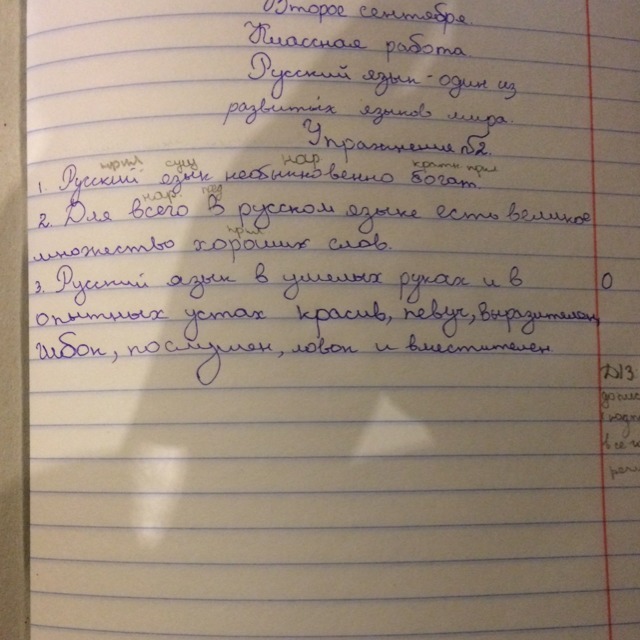 Второе сентября.
Классная работа
Русский язык - один из
развитых языков мира.
Упражнение №2.
прил сущ нар кратк прил
1. Русский езык необыкновенно богат.
нар пред
2. Для всего в русском языке есть великое
прил
множество хороших слов.
3. Русский язык в умелых руках и в
опытных устах красив, певуч, выразителен,
гибок, послушен, ловок и вместителен.
Д/З